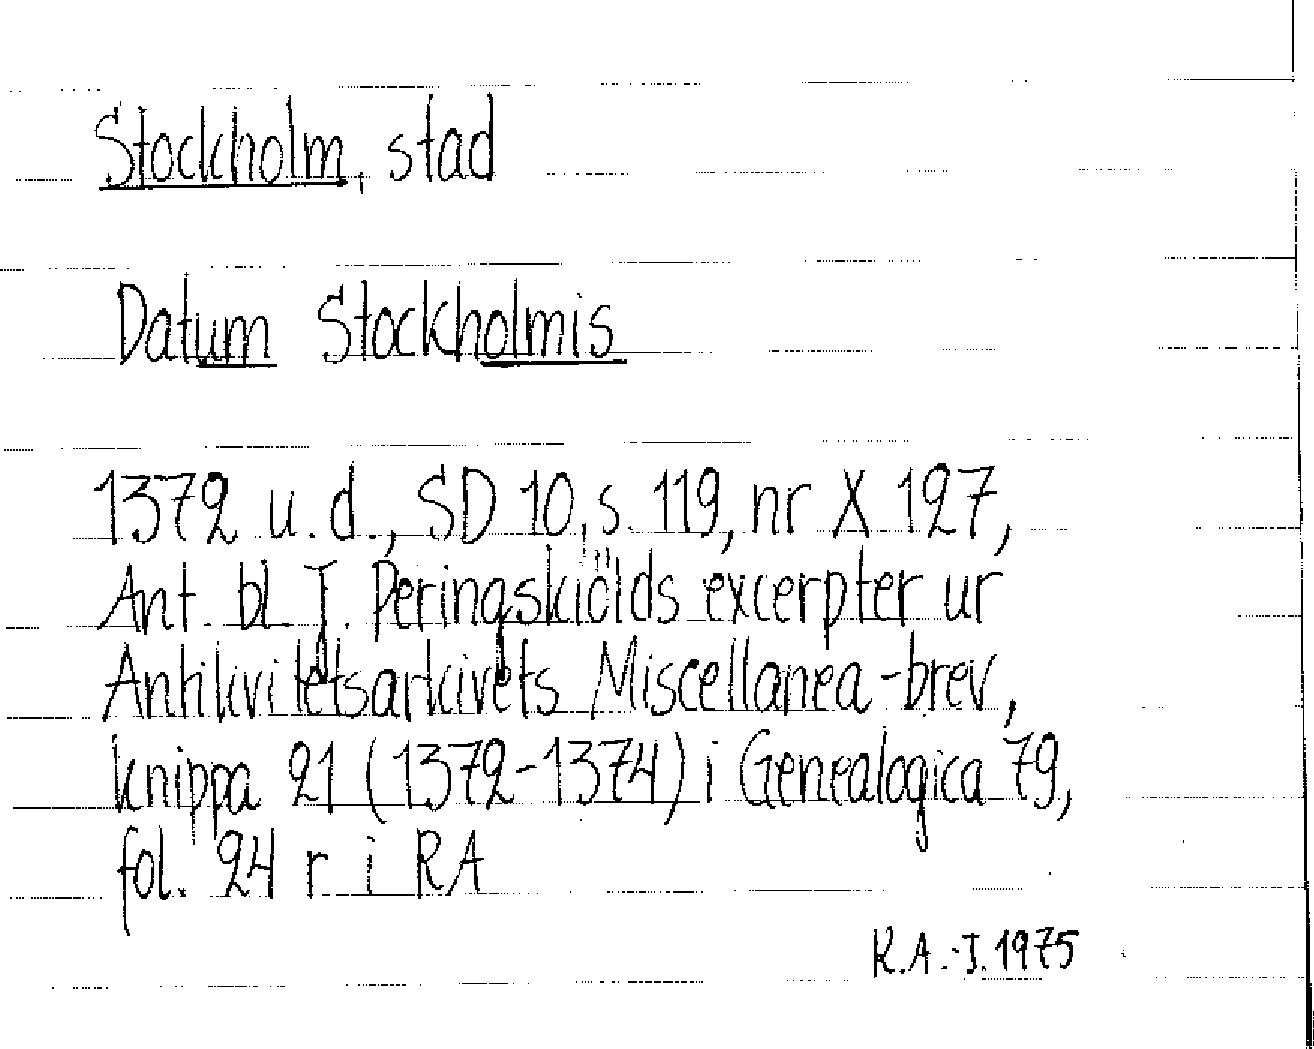 Stockholm, stad
Datum Stockholmis
1372 u.d., SD 10, s. 119, nr X 127,
Ant. bl. J. Peringskiölds excerpter ur
Antikvitetsarkivets Miscellanea-brev,
knippa 21 (1372-1374) i Genealogica 79,
fol. 24 r i RA
K.A.-J. 1975